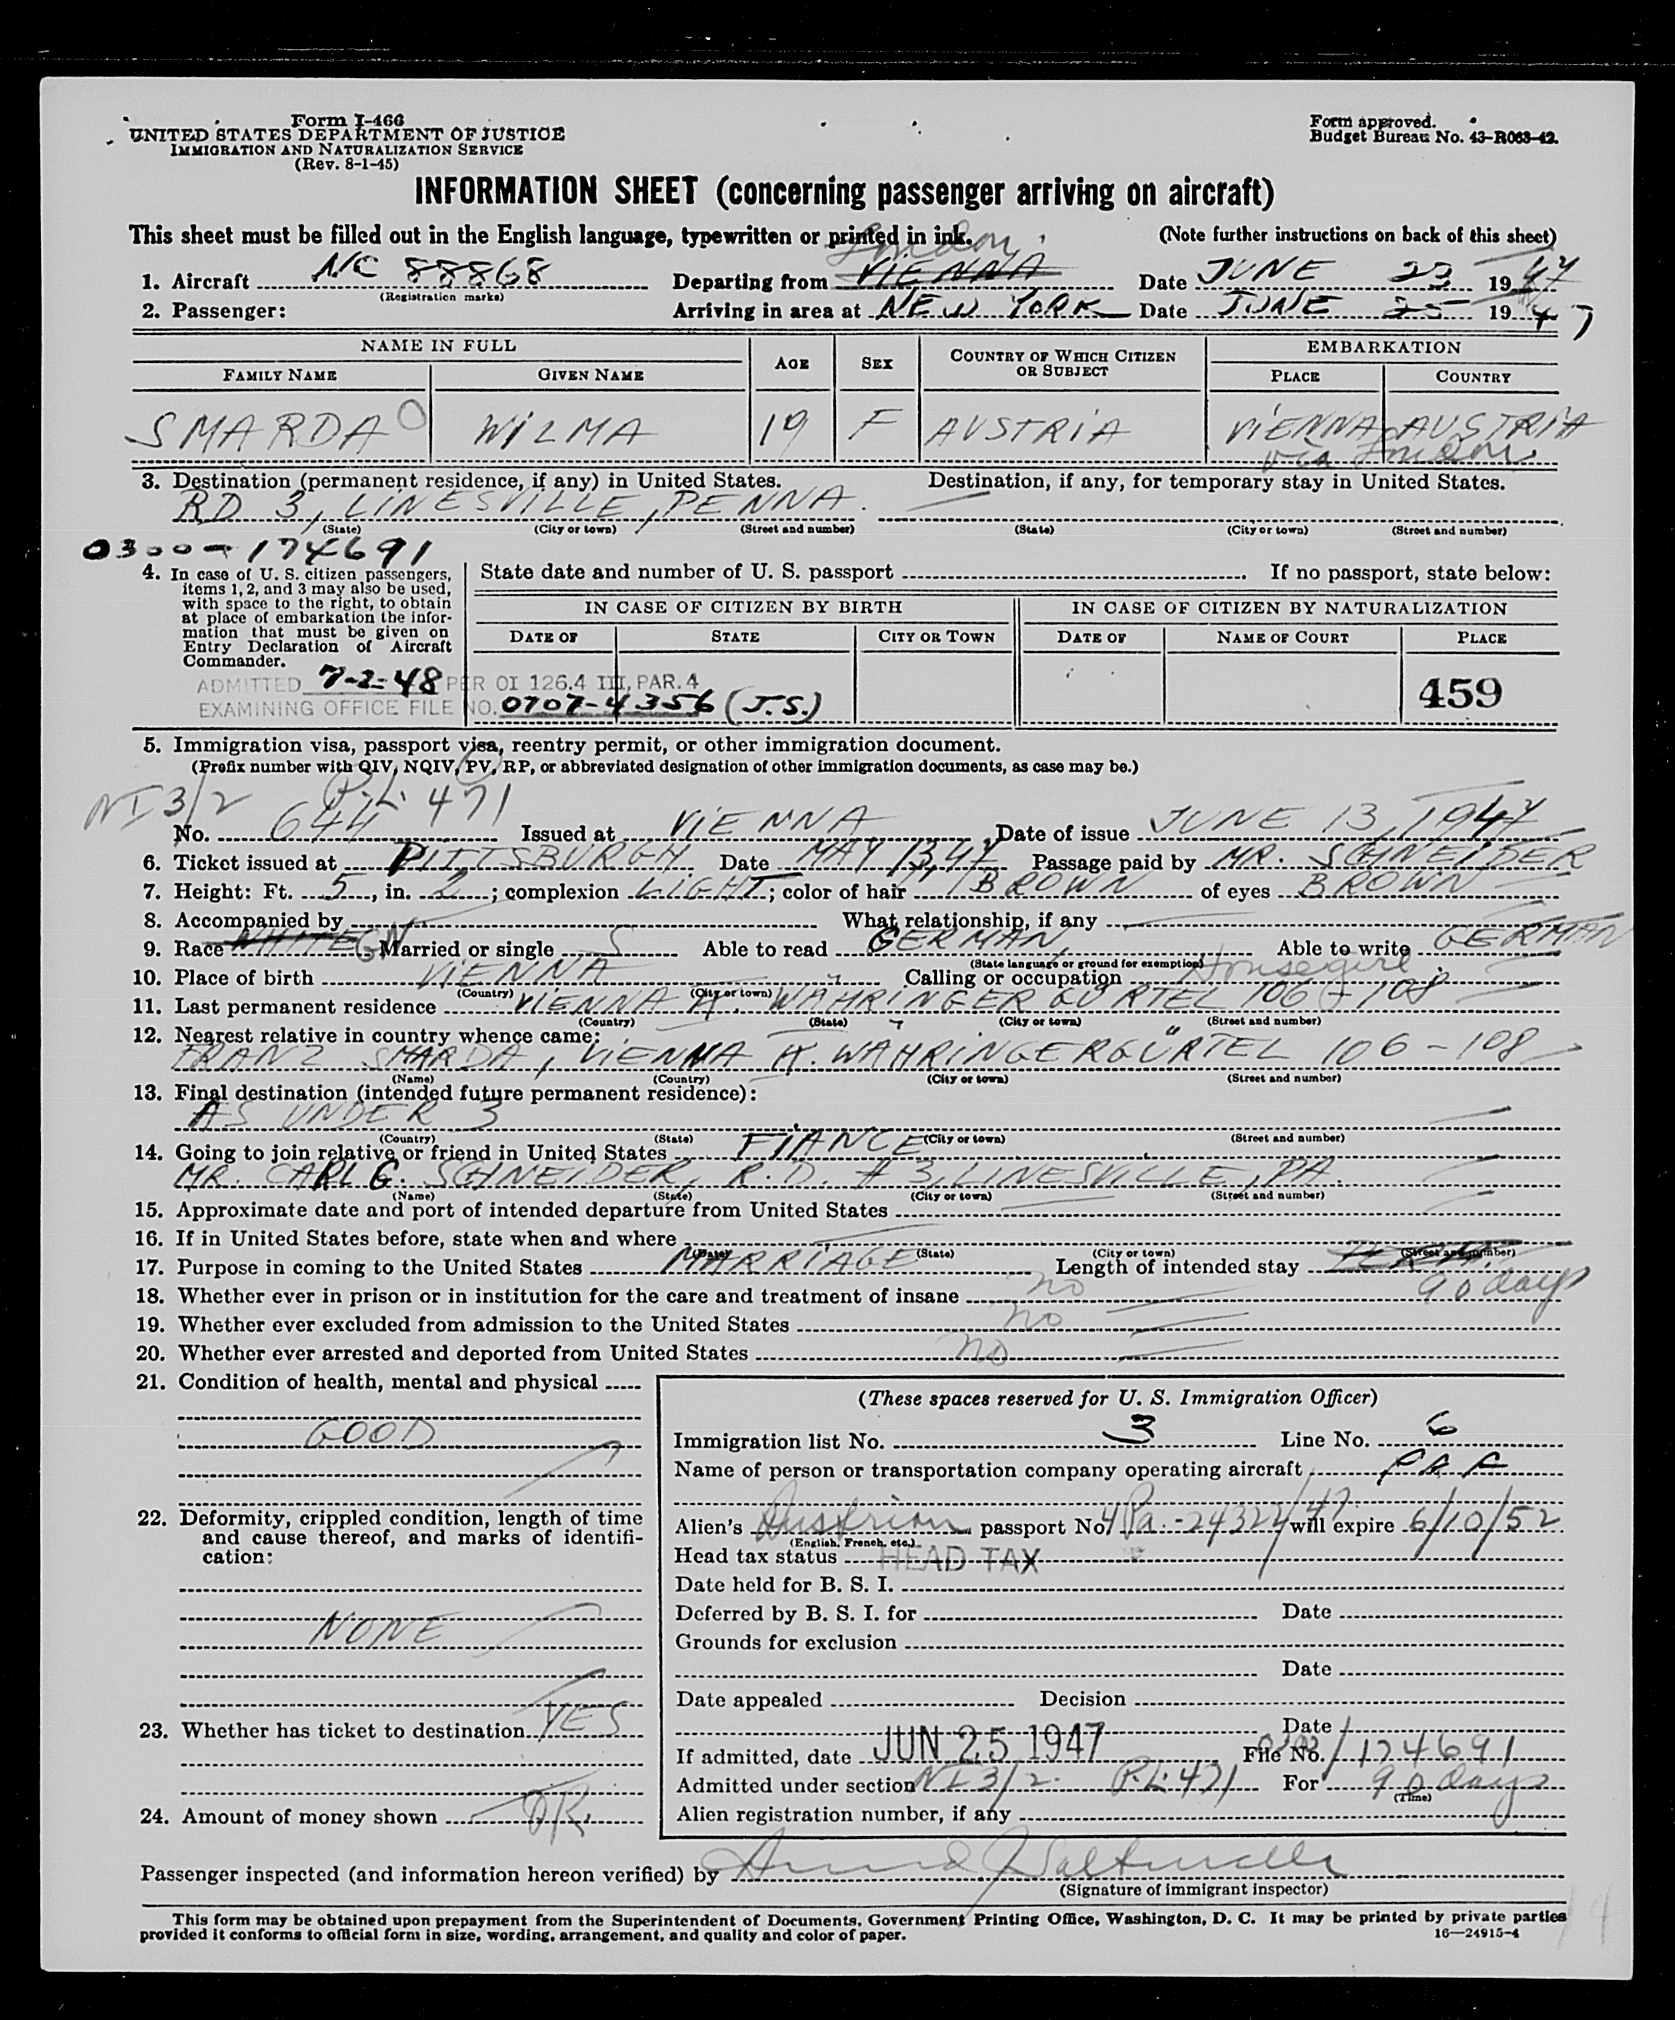 Form I-466
UNITED STATES DEPARTMENT OF JUSTICE
IMMIGRATION AND NATURALIZATION SERVICE
(Rev. 8-1-45)
Form approved.
Budget Bureau No. 43-R063-42.
INFORMATION SHEET (concerning passenger arriving on aircraft)
This sheet must be filled out in the English language, typewritten or printed in ink. (Note further instructions on back of this sheet)
London
1. Aircraft NC 88868 Departing from VIENNA Date JUNE 23 1947
(Registration marks)
2. Passenger: Arriving in area at NEW YORK Date JUNE 25 1947
NAME IN FULL AGE SEX COUNTRY OF WHICH CITIZEN OR SUBJECT EMBARKATION
FAMILY NAME GIVEN NAME PLACE COUNTRY
SMARDA WILMA 19 F AUSTRIA VIENNA AUSTRIA
via London
3. Destination (permanent residence, if any) in United States. Destination, if any, for temporary stay in United States.
RD 3, LINESVILLE, PENNA.
(State) (City or town) (Street and number) (State) (City or town) (Street and number)
0300-174691
4. In case of U. S. citizen passengers, items 1, 2, and 3 may also be used, with space to the right, to obtain at place of embarkation the information that must be given on Entry Declaration of Aircraft Commander.
State date and number of U. S. passport If no passport, state below:
IN CASE OF CITIZEN BY BIRTH IN CASE OF CITIZEN BY NATURALIZATION
DATE OF STATE CITY OR TOWN DATE OF NAME OF COURT PLACE
459
ADMITTED 7-2-48 PER OI 126.4 III, PAR. 4
EXAMINING OFFICE FILE NO. 0707-4356 (J.S.)
5. Immigration visa, passport visa, reentry permit, or other immigration document.
(Prefix number with QIV, NQIV, PV, RP, or abbreviated designation of other immigration documents, as case may be.)
NI 3/2 P.L. 471
No. 644 Issued at VIENNA Date of issue JUNE 13, 1947
6. Ticket issued at PITTSBURGH Date MAY 13, 47 Passage paid by MR. SCHNEIDER
7. Height: Ft. 5, in. 2; complexion LIGHT; color of hair BROWN of eyes BROWN
8. Accompanied by What relationship, if any
9. Race WHITE Married or single S Able to read GERMAN Able to write GERMAN
(State language or ground for exemption)
10. Place of birth VIENNA Calling or occupation Housegirl
(Country) (City or town)
11. Last permanent residence VIENNA WÄHRINGER GÜRTEL 106-108
(Country) (State) (City or town) (Street and number)
12. Nearest relative in country whence came:
FRANZ SMARDA, VIENNA WÄHRINGERGÜRTEL 106-108
(Name) (Country) (City or town) (Street and number)
13. Final destination (intended future permanent residence):
AS UNDER 3
(Country) (State) (City or town) (Street and number)
14. Going to join relative or friend in United States FIANCE
MR. CARL G. SCHNEIDER, R.D. # 3, LINESVILLE, PA.
(Name) (State) (City or town) (Street and number)
15. Approximate date and port of intended departure from United States
16. If in United States before, state when and where
(Date) (State) (City or town) (Street and number)
17. Purpose in coming to the United States MARRIAGE Length of intended stay
90 days
18. Whether ever in prison or in institution for the care and treatment of insane no
19. Whether ever excluded from admission to the United States no
20. Whether ever arrested and deported from United States no
21. Condition of health, mental and physical
GOOD
22. Deformity, crippled condition, length of time and cause thereof, and marks of identification:
NONE
23. Whether has ticket to destination YES
24. Amount of money shown
(These spaces reserved for U. S. Immigration Officer)
Immigration list No. 3 Line No. 6
Name of person or transportation company operating aircraft
Alien's Austrian passport No. 4Pa.-24324/47 will expire 6/10/52
(English, French, etc.)
Head tax status HEAD TAX
Date held for B. S. I.
Deferred by B. S. I. for Date
Grounds for exclusion
Date
Date appealed Decision
Date
If admitted, date JUN 25 1947 File No. 0300/174691
Admitted under section NI 3/2. P.L. 471 For 90 days
(Time)
Alien registration number, if any
Passenger inspected (and information hereon verified) by
(Signature of immigrant inspector)
This form may be obtained upon prepayment from the Superintendent of Documents, Government Printing Office, Washington, D. C. It may be printed by private parties
provided it conforms to official form in size, wording, arrangement, and quality and color of paper.
16—24915-4